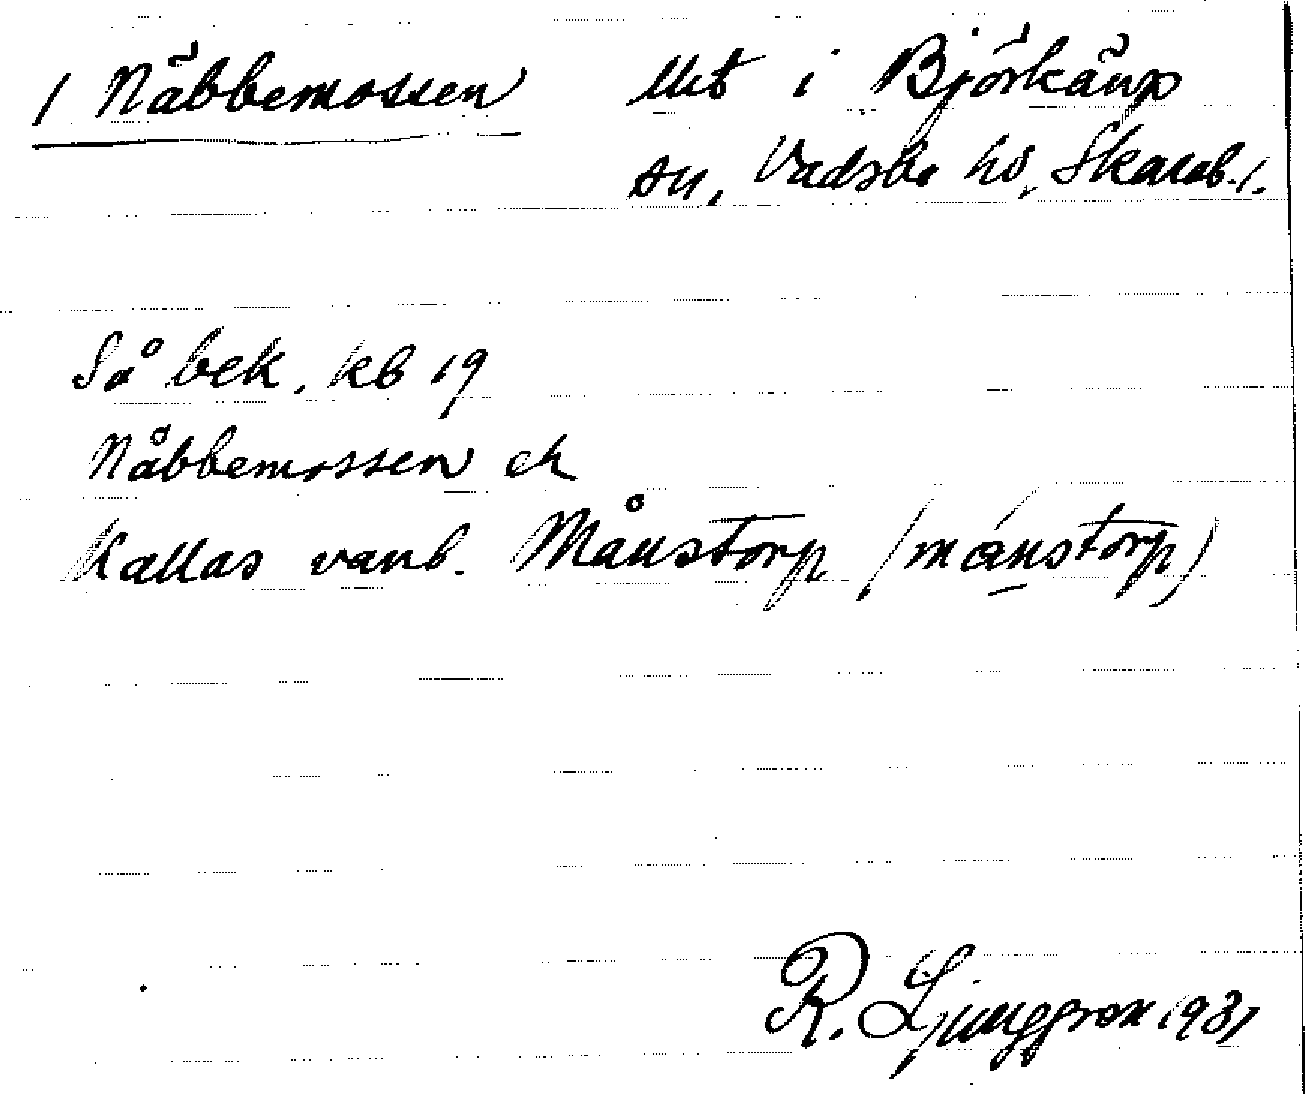 1 Näbbemossen   llht i Björkäng
sn, Vadsbo hd, Skarab. l.
Så bek. kb 19
Nåbbemossen ek
Kallas vanl. Månstorp (månstorp)
R. Ljunggren 1931